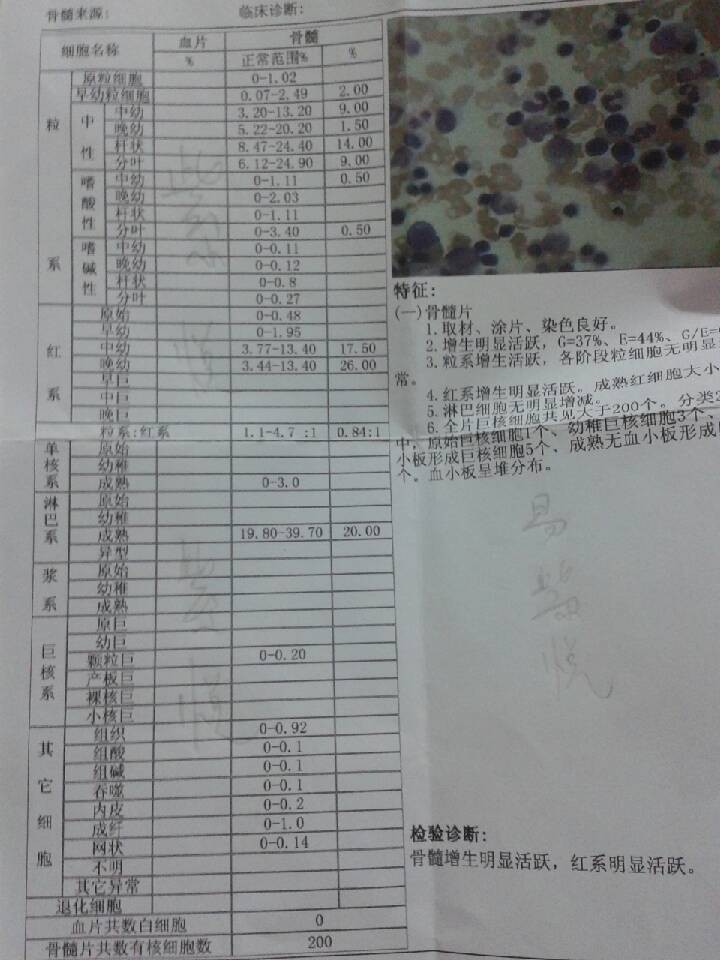 骨髓来源: 临床诊断:
细胞名称 血片 骨髓
% 正常范围% %
粒系
原粒细胞 0-1.02
早幼粒细胞 0.07-2.49 2.00
中性 中幼 3.20-13.20 9.00
晚幼 5.22-20.20 1.50
杆状 8.47-24.40 14.00
分叶 6.12-24.90 9.00
嗜酸性 中幼 0-1.11 0.50
晚幼 0-2.03
杆状 0-1.11
分叶 0-3.40 0.50
嗜碱性 中幼 0-0.11
晚幼 0-0.12
杆状 0-0.8
分叶 0-0.27
红系 原始 0-0.48
早幼 0-1.95
中幼 3.77-13.40 17.50
晚幼 3.44-13.40 26.00
早巨
中巨
晚巨
粒系:红系 1.1-4.7 :1 0.84:1
单核系 原始
幼稚
成熟 0-3.0
淋巴系 原始
幼稚
成熟 19.80-39.70 20.00
异型
浆系 原始
幼稚
成熟
巨核系 原巨
幼巨
颗粒巨 0-0.20
产板巨
裸核巨
小核巨
其它细胞 组织 0-0.92
组酸 0-0.1
组碱 0-0.1
吞噬 0-0.1
内皮 0-0.2
成纤 0-1.0
网状 0-0.14
不明
其它异常
退化细胞
血片共数白细胞 0
骨髓片共数有核细胞数 200
特征:
(一)骨髓片
1.取材、涂片、染色良好。
2.增生明显活跃，G=37%、E=44%、G/E=
3.粒系增生活跃，各阶段粒细胞无明显
常。
4.红系增生明显活跃。成熟红细胞大小
5.淋巴细胞无明显增减。
6.全片巨核细胞共见大于200个。分类
中，原始巨核细胞1个、幼稚巨核细胞3个、
小板形成巨核细胞5个、成熟无血小板形成
个。血小板呈堆分布。
检验诊断:
骨髓增生明显活跃，红系明显活跃。